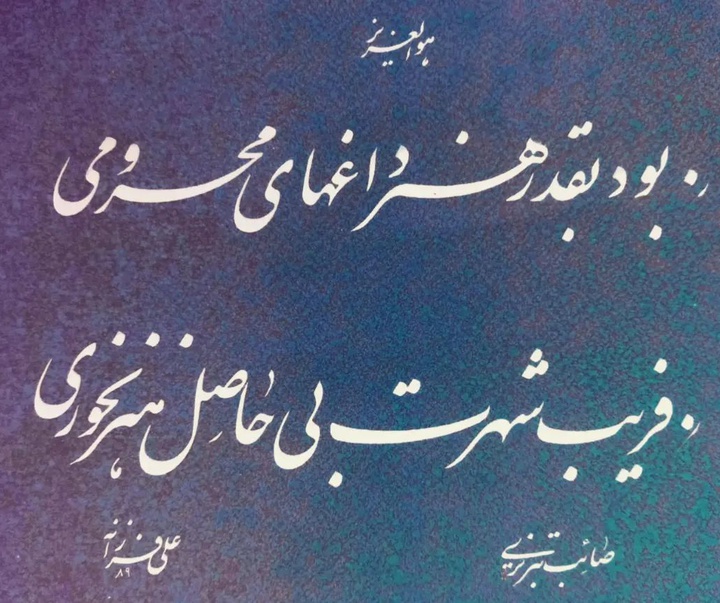 هوالعزیز
بود بقدر هنر داغهای محرومی
فریب شهرت بی حاصل هنر نخوری
صائب تبریزی
علی فرزانه
۸۹